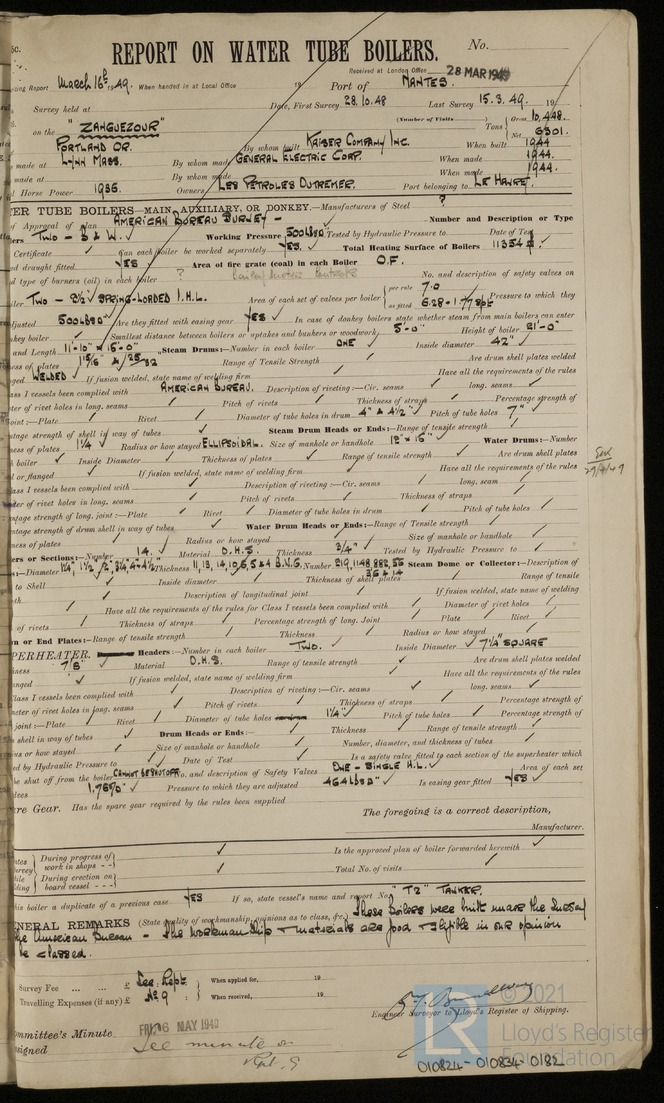 REPORT ON WATER TUBE BOILERS.
No.
Received at London Office 28 MAR 1949
ing Report March 16th 1949. When handed in at Local Office 19 Port of NANTES.
Survey held at Date, First Survey 28.10.48 Last Survey 15.3.49. 19
(Number of Visits)
on the "ZANGUEZOUR" Tons Gross 10,448. Net 6301.
PORTLAND OR. By whom built KAISER COMPANY INC. When built 1944
made at LYNN MASS. By whom made GENERAL ELECTRIC CORP. When made 1944.
made at By whom made When made 1944.
Horse Power 1936. Owners LES PETROLES OUTREMER. Port belonging to LE HAVRE.
ER TUBE BOILERS—MAIN, AUXILIARY, OR DONKEY.—Manufacturers of Steel ?
of Approval of plan AMERICAN BUREAU SURVEY - Number and Description or Type
ers TWO - B & W. Working Pressure 500LBS Tested by Hydraulic Pressure to Date of Test
Certificate Can each boiler be worked separately YES. Total Heating Surface of Boilers
ed draught fitted YES Area of fire grate (coal) in each Boiler O.F.
d type of burners (oil) in each boiler ? No. and description of safety valves on
iler TWO - 2½ SPRING-LOADED I.H.L. Area of each set of valves per boiler per rule 7.0 as fitted Pressure to which they
adjusted 500LBS Are they fitted with easing gear YES In case of donkey boilers state whether steam from main boilers can enter
nkey boiler Smallest distance between boilers or uptakes and bunkers or woodwork 5'-0" Height of boiler 21'-0"
and Length 11'-10" x 15'-0" Steam Drums:—Number in each boiler ONE Inside diameter 42"
ness of plates Range of Tensile Strength Are drum shell plates welded
ged WELDED If fusion welded, state name of welding firm Have all the requirements of the rules
lass I vessels been complied with AMERICAN BUREAU. Description of riveting:—Cir. seams long. seams
ter of rivet holes in long. seams Pitch of rivets Thickness of straps Percentage strength of
joint:—Plate Rivet Diameter of tube holes in drum 4" & 4½" Pitch of tube holes 7"
ntage strength of shell in way of tubes Steam Drum Heads or Ends:—Range of tensile strength
ness of plates 1¼ Radius or how stayed ELLIPSOIDAL. Size of manhole or handhole 12" x 16" Water Drums:—Number
h boiler Inside Diameter Thickness of plates Range of tensile strength Are drum shell plates
d or flanged If fusion welded, state name of welding firm Have all the requirements of the rules
lass I vessels been complied with Description of riveting:—Cir. seams long. seam
ter of rivet holes in long. seams Pitch of rivets Thickness of straps
ntage strength of long. joint:—Plate Rivet Diameter of tube holes in drum Pitch of tube holes
ntage strength of drum shell in way of tubes Water Drum Heads or Ends:—Range of Tensile strength
ness of plates Radius or how stayed Size of manhole or handhole
ers or Sections:—Number 14. Material O.H.S. Thickness 3/4" Tested by Hydraulic Pressure to
s:—Diameter Thickness Number Steam Dome or Collector:—Description of
to Shell Inside diameter Thickness of shell plates Range of tensile
Description of longitudinal joint If fusion welded, state name of welding
Have all the requirements of the rules for Class I vessels been complied with Diameter of rivet holes
of rivets Thickness of straps Percentage strength of long. Joint Plate Rivet
n or End Plates:—Range of tensile strength Thickness Radius or how stayed
PERHEATER. Headers:—Number in each boiler TWO. Inside Diameter 7¼" SQUARE
ness 7/8" Material O.H.S. Range of tensile strength Are drum shell plates welded
anged If fusion welded, state name of welding firm Have all the requirements of the rules
Class I vessels been complied with Description of riveting:—Cir. seams long. seams
meter of rivet holes in long. seams Pitch of rivets Thickness of straps Percentage strength of
joint:—Plate Rivet Diameter of tube holes 1¼" Pitch of tube holes Percentage strength of
shell in way of tubes Drum Heads or Ends:— Thickness Range of tensile strength
us or how stayed Size of manhole or handhole Number, diameter, and thickness of tubes
ed by Hydraulic Pressure to Date of Test Is a safety valve fitted to each section of the superheater which
be shut off from the boiler CANNOT BE SHUT OFF. o. and description of Safety Valves ONE - SINGLE H.L. Area of each set
1.76 Pressure to which they are adjusted 464LBS Is easing gear fitted YES
are Gear. Has the spare gear required by the rules been supplied
The foregoing is a correct description,
Manufacturer.
During progress of work in shops - - Is the approved plan of boiler forwarded herewith
During erection on board vessel - - - Total No. of visits
his boiler a duplicate of a previous case YES If so, state vessel's name and report No. "T2" TANKER.
NERAL REMARKS (State quality of workmanship, opinions as to class, &c.) These boilers were built under the Survey
the American Bureau - The workmanship & materials are good & eligible in our opinion
be classed.
Survey Fee ... ... £ See Rept When applied for, 19
Travelling Expenses (if any) £ No 9 When received, 19
Engineer Surveyor to Lloyd's Register of Shipping.
ommittee's Minute FRI 6 MAY 1949
ssigned See minute on
Rpt. 9
© 2021
LR Lloyd's Register
Foundation
010824-010834-0182